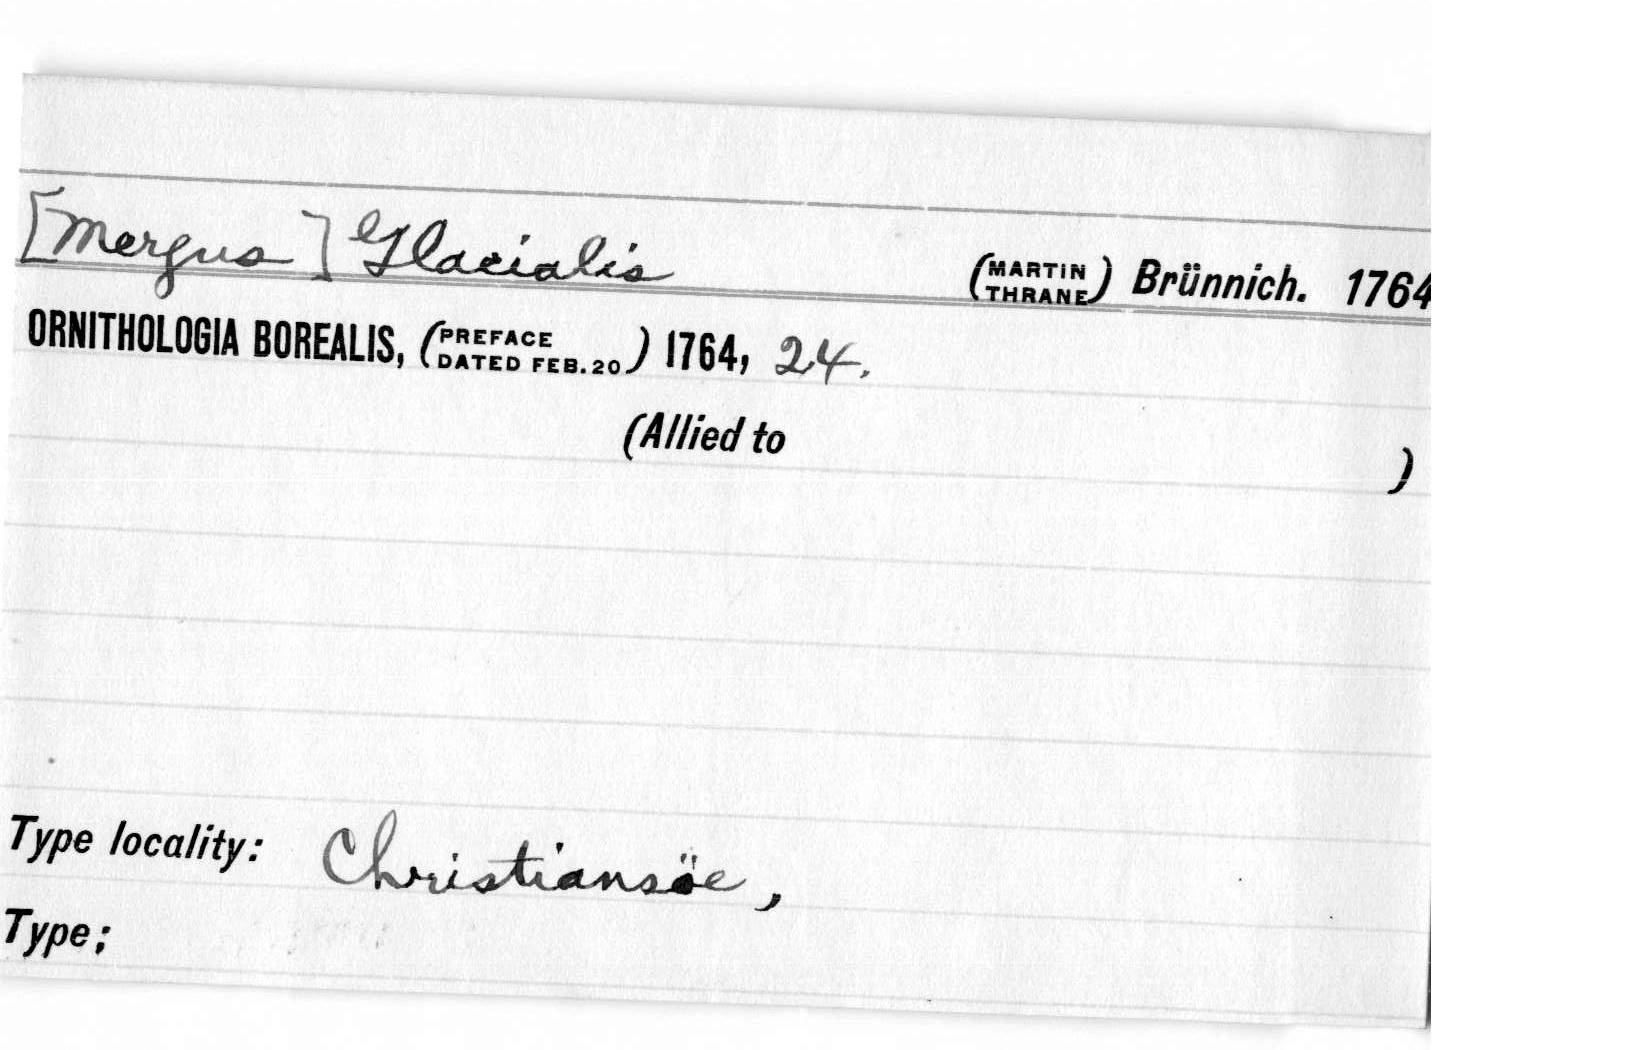 [Mergus] Glacialis (MARTIN THRANE) Brünnich. 1764
ORNITHOLOGIA BOREALIS, (PREFACE DATED FEB. 20) 1764, 24.
(Allied to )
Type locality: Christiansöe,
Type;